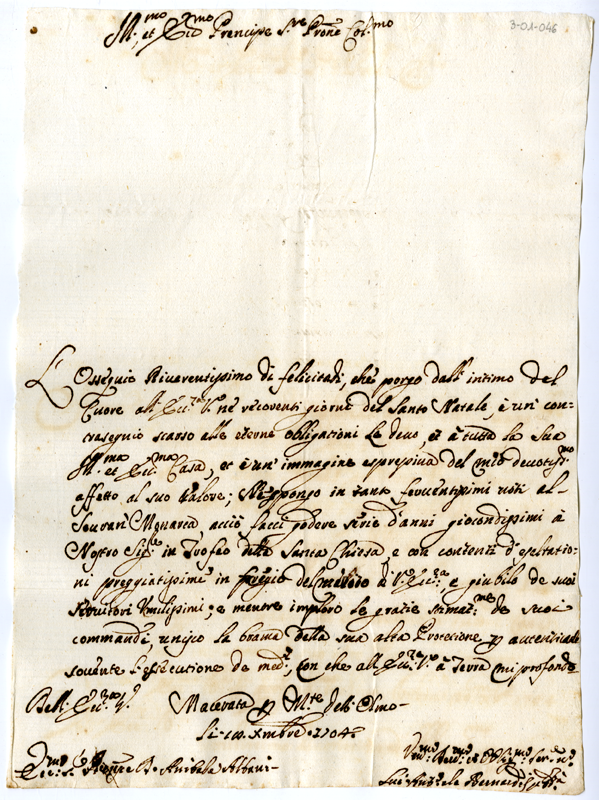 3-01-046
Ill.mo et Ecc.mo Prencipe S.re Prone Col.mo
L'Ossequio Riverentissimo di felicitadi, che porgo dall'intimo del
Cuore all'Ecc.za V. ne recoventi giorni del Santo Natale, è un' con-
trasegnio scarso alle eterne obligationi Le devo, et à tutta la Sua
Ill.ma et Ecc.ma Casa, et è un' immagine espressiva del mio devotiss.mo
affetto al suo Valore; in tanto ferventissimi voti al
Sovran' Monarca, acciò facci godere serie d'anni giocondissimi à
Nostro Sig.re in Trofeo della Santa Chiesa, e con contenti d'esaltatio-
ni preggiatissime in freggio del merito à V. Ecc.za, e giubilo de suoi
Servitori Umilissimi; e mentre imploro le gratie de suoi
commandi, unico la brama della sua alta Protettione p autenticare
sovente l'essecutione de med.i, con che all'Ecc.za V. à Terra mi profondo
Dell' Ecc.za V.
Macerata p M.te dell'Olmo
Li Xmbre 1704
Annibale Albani